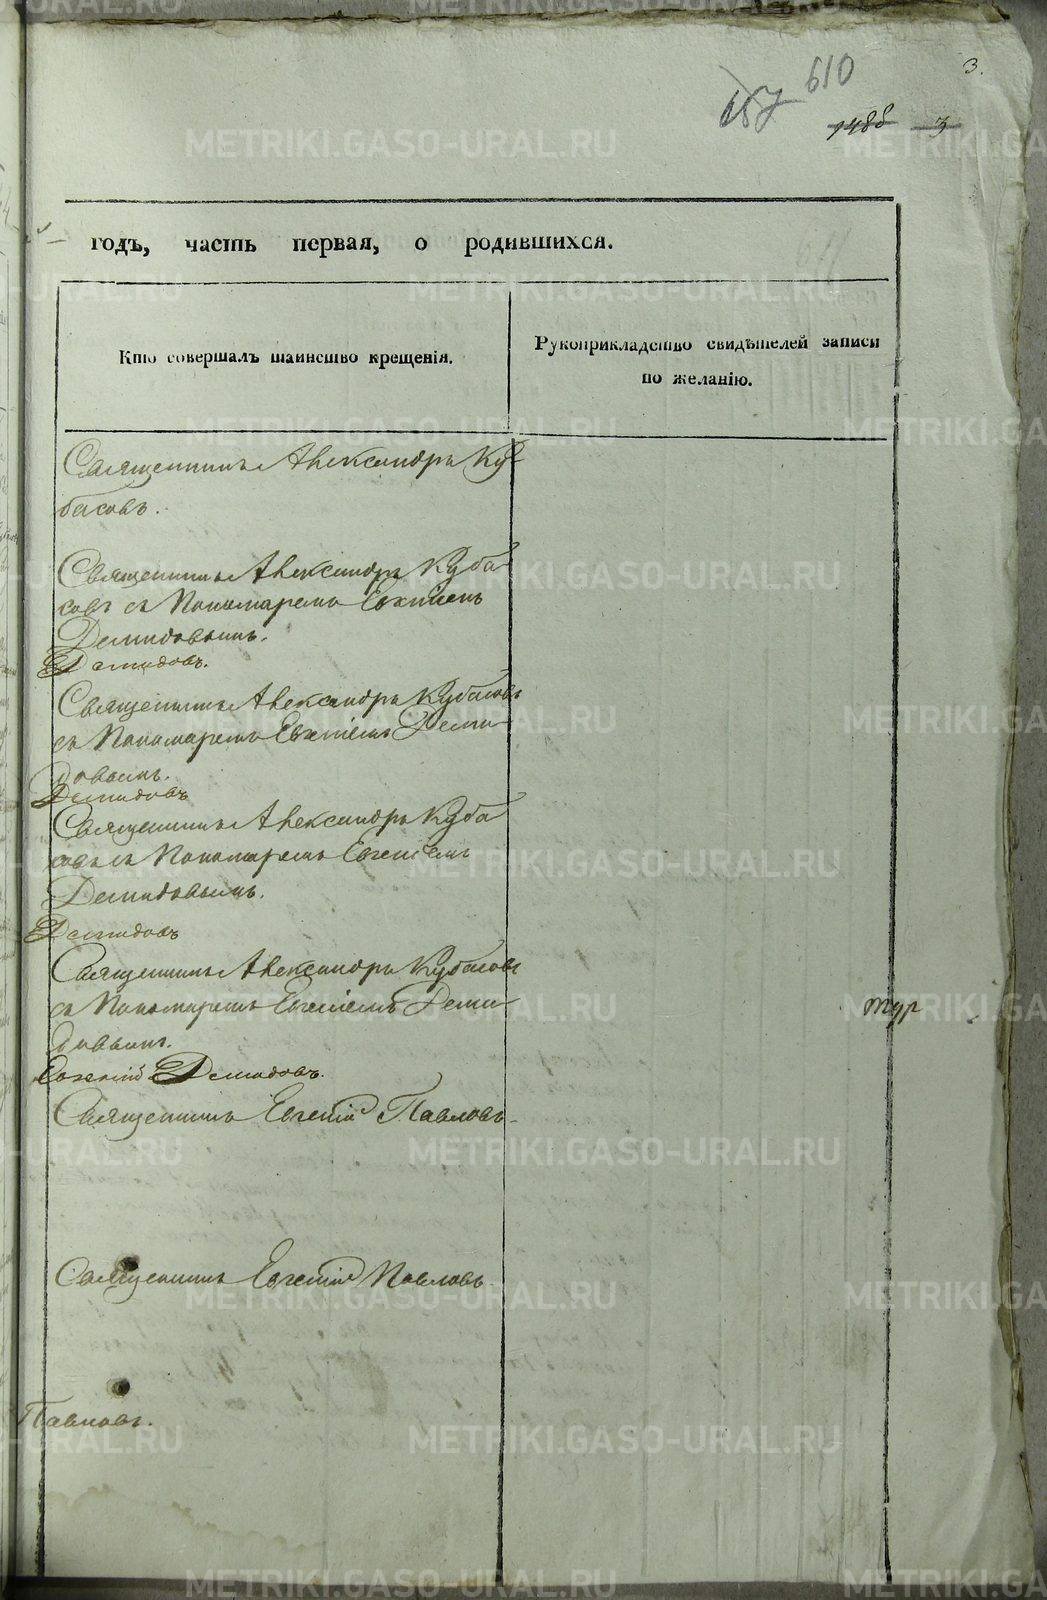 3.
610
157
1488 3
годъ, часть первая, о родившихся.
Кто совершалъ таинство крещенія.
Рукоприкладство свидѣтелей записи
по желанію.
Священникъ Александръ Ку-
басовъ.
Священникъ Александръ Куба-
совъ съ Пономаремъ Евгеніемъ
Демидовымъ.
Демидовъ.
Священникъ Александръ Кубасовъ
съ Пономаремъ Евгеніемъ Деми-
довымъ.
Демидовъ
Священникъ Александръ Куба
совъ съ Пономаремъ Евгеніемъ
Демидовымъ.
Демидовъ
Священникъ Александръ Кубасовъ
съ Пономаремъ Евгеніемъ Деми-
довымъ.
Евгеній Демидовъ.
Священникъ Евгеній Павловъ.
Священникъ Евгеній Павловъ.
Павловъ.
METRIKI.GASO-URAL.RU